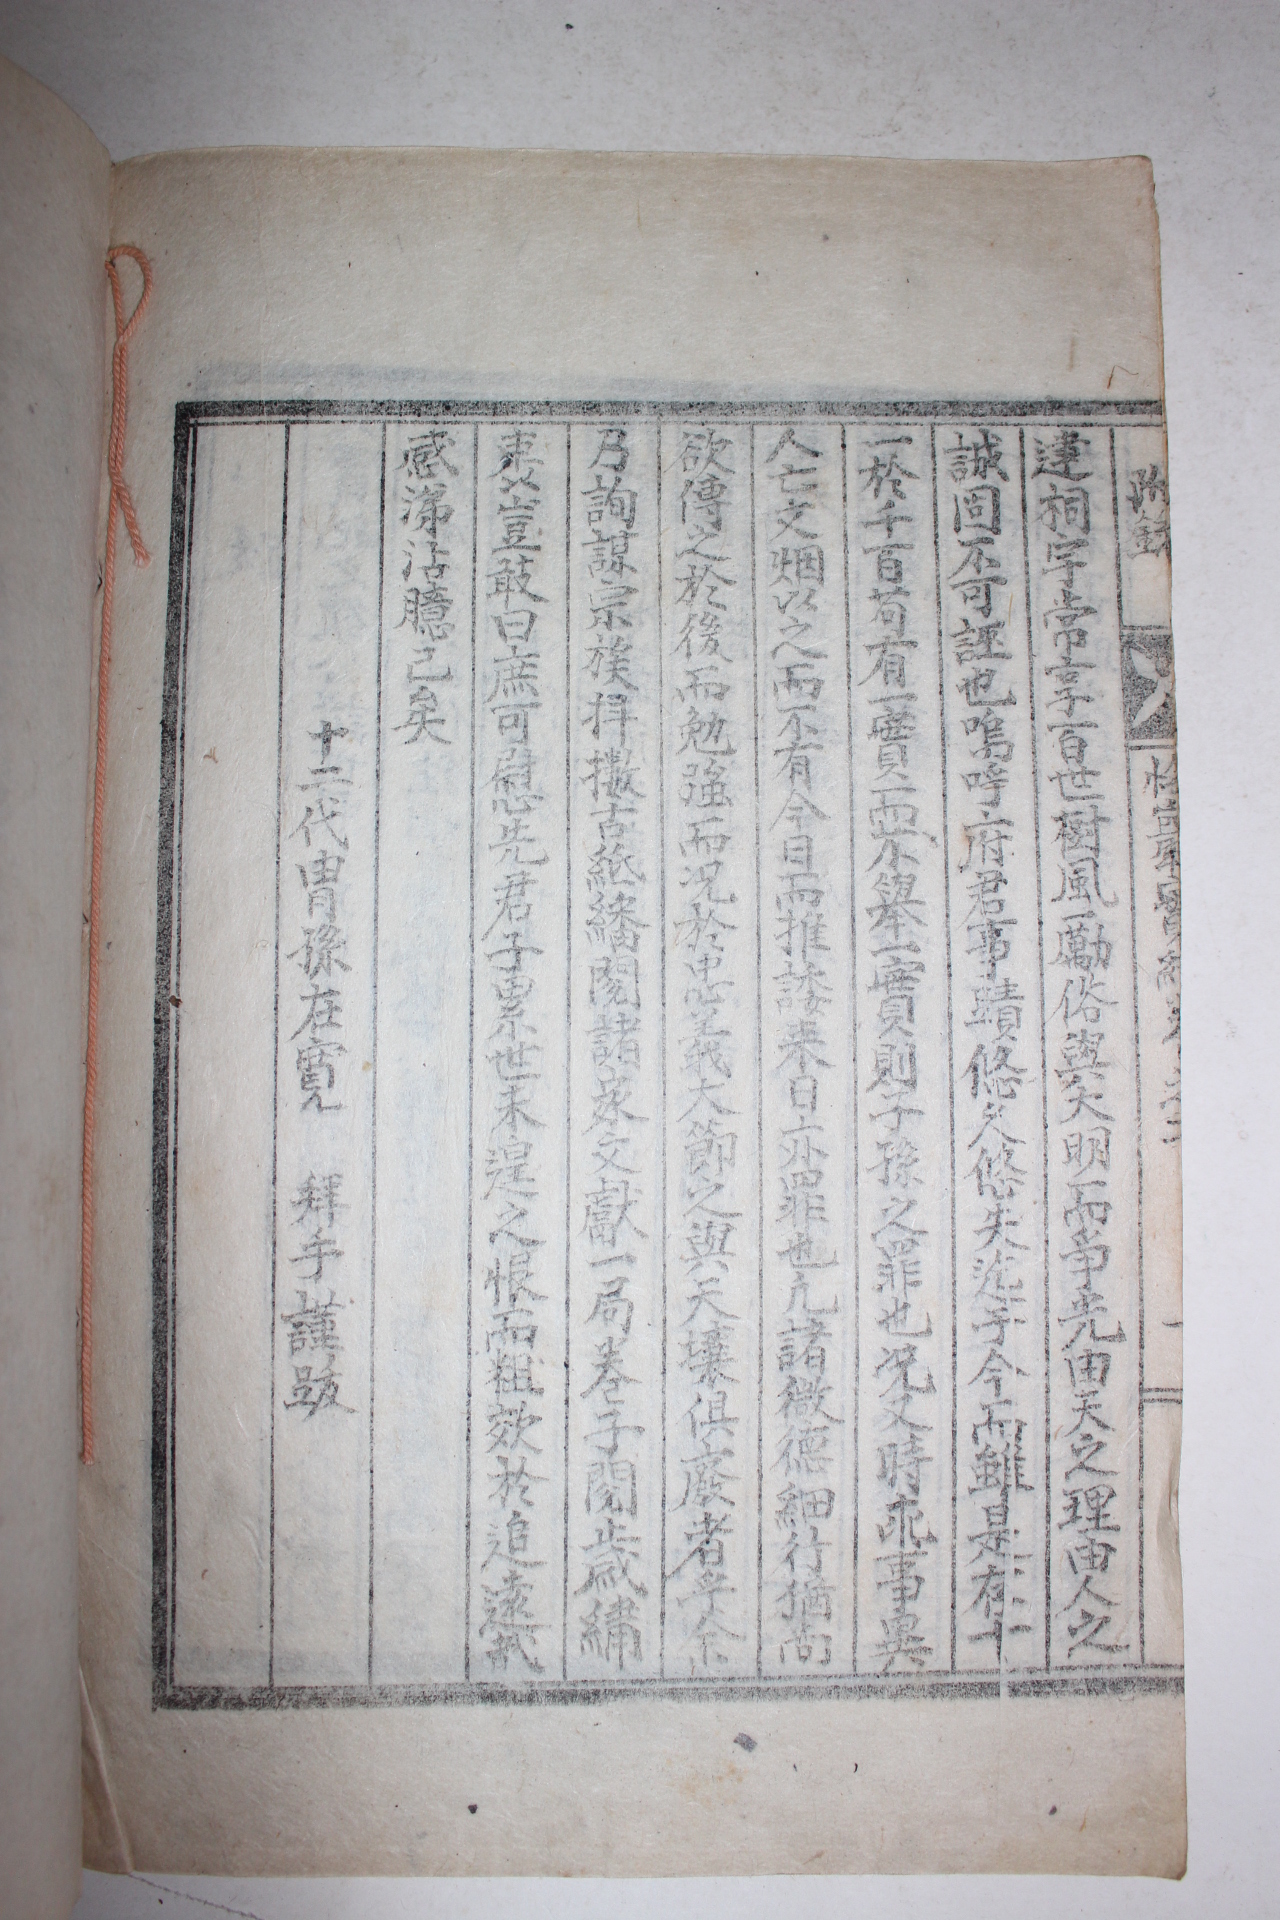 附錄
建祠宇嘗享百世樹風勵俗與天明而爭光由天之理由人之
誠固不可誣也嗚呼府君事蹟悠久悠失迄于今而雖是存十
一於千百苟有一實而不擧一實則子孫之罪也况又時乖事異
人亡文烟以之而不有今日而推諉来日亦罪也凡諸微德細行猶尚
欲傳之於後而勉强而况於忠義大節之與天壤俱廢者乎余
乃詢謀宗族拜撒古紙繙閱諸家文獻一局卷子閱歲繡
束以豈敢曰庶可慰先君子累世未遑之恨而粗效於追遠哉
感涕沾臆己矣
十二代冑孫在寬 拜手謹跋